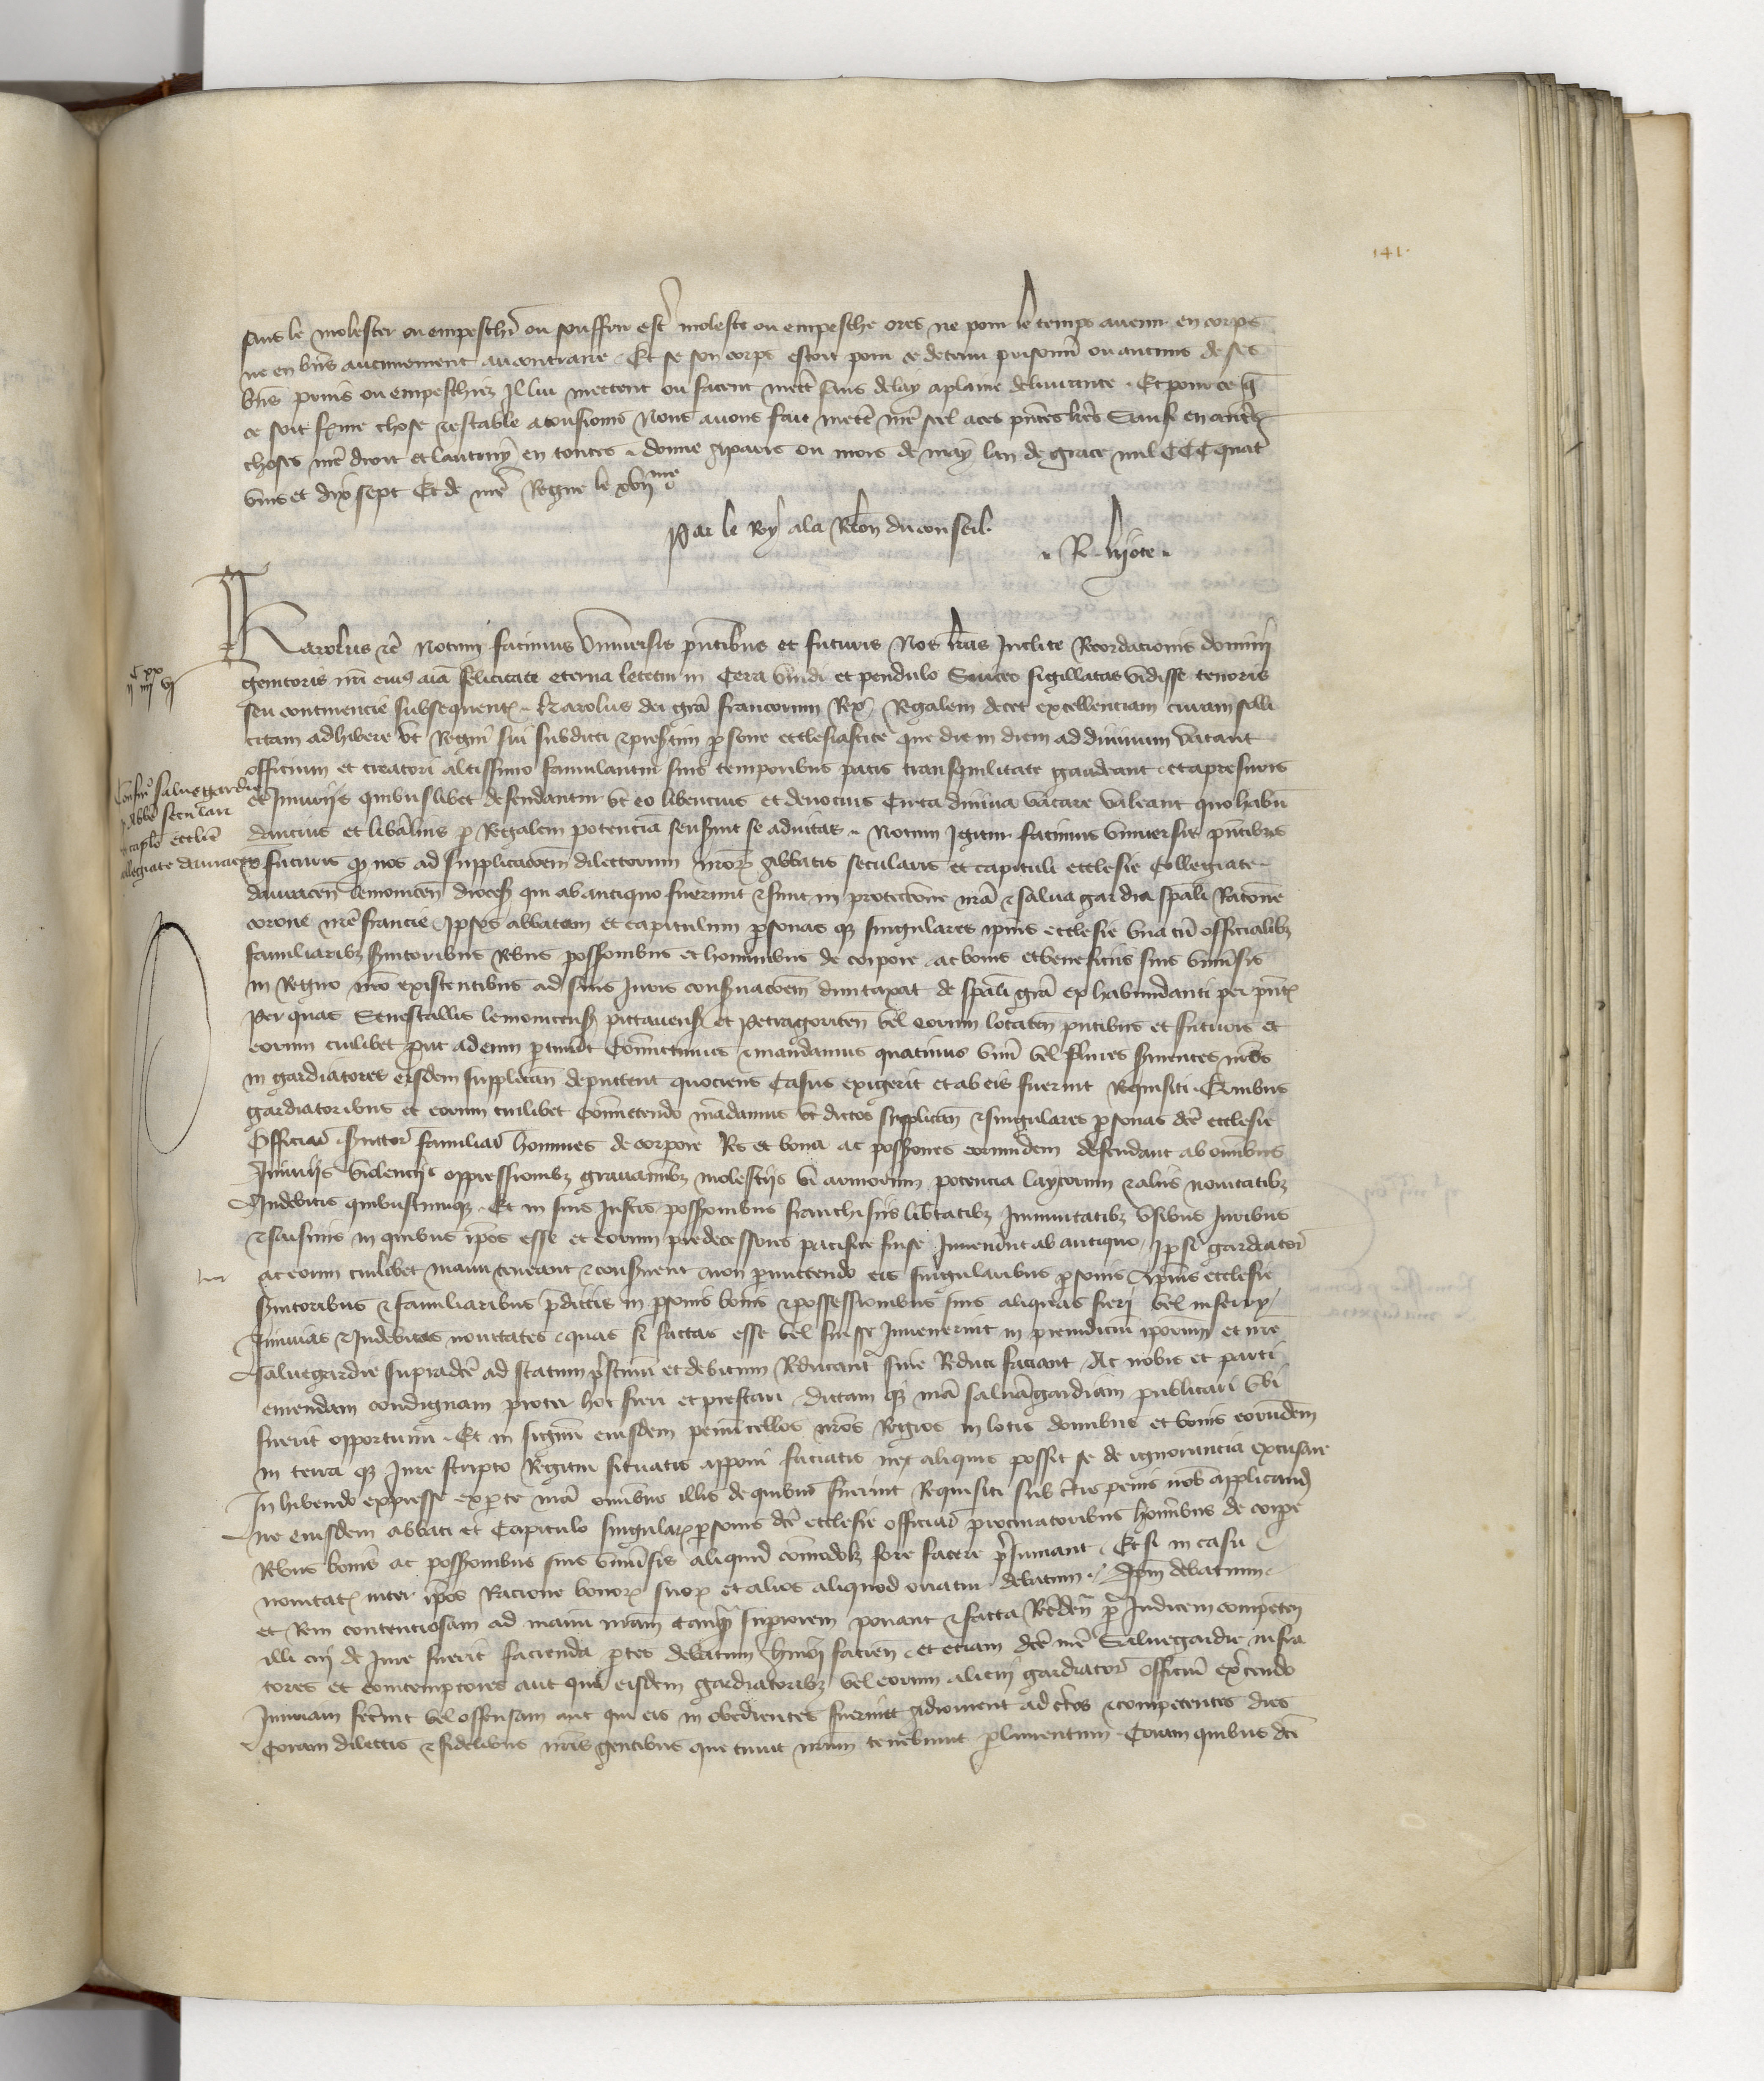 141.
sans le molester ou empeschier ou souffrir estre moleste ou empesche ores ne pour le temps avenir en corps
ne en biens aucunement au contraire. Et se son corps estoit pour ce detenu prisonnier ou aucuns de ses
biens prins ou empeschiez Il lui mettent ou facent mettre sans delay a plaine delivrance. Et pour ce que
ce soit ferme chose et estable a tousiours Nous avons fait mettre nostre seel a ces presentes lettres Sauf en autres
choses nostre droit et lautruy en toutes. donne a Paris ou mois de may lan de grace mil CCC quatre
vins et dix sept Et de nostre Regne le xvij me
Par le Roy a la Relacion du conseil.
R. hijote.
IIc IIIIxx VI
Karolus etc Notum facimus Universis presentibus et futuris Nos litteras Inclite Recordacionis domini
genitoris nostri cuius anima felicitate eterna letetur in Cera viridi et pendulo Serico sigillatas vidisse tenoris
seu continencie subsequentis. Karolus dei gracia francorum Rex, Regalem decet excellenciam curam solli
citam adhibere vt Regni sui subditi et presertim persone ecclesiastice que die in diem ad divinum vacant
officium et creatori altissimo famulantur suis temporibus pacis transquilitate gaudeant. et a pressuris
Confirmacio salvegardie
et Iniuriis quibuslibet defendantur vt eo libencius et devocius Circa divina vacare valeant quo habun
pro Abbate seculari
dancius et liberalius per Regalem potenciam senserint se adiutas. Notum Igitur facimus vniversis presentibus
et capitulo ecclesie
et futuris quod nos ad supplicacionem dilectorum nostrorum Abbatis secularis et capituli ecclesie Collegiate
collegiate dauracen
dauracen lemonicen diocesis qui ab antiquo fuerunt et sunt in protectione nostra et salva gardia speciali Racione
corone nostre francie. Ipsos abbatem et capitulum personas que singulares ipsius ecclesie vna cum officialibus
familiaribus servitoribus Rebus possessionibus et hominibus de corpore. ac bonis et beneficiis suis vniversis
in Regno nostro existentibus ad sui Iuris conservacionem dumtaxat de speciali gracia ex habundanti per presentes
Per quas Senescallis lemonicensi pictavensi et Petragoricen vel eorum locatenentibus presentibus et futuris et
eorum cuilibet prout ad eum pertinuerit Committimus et mandamus quatinus vnum vel plures servientes nostros
in gardiatores eisdem supplican deputent quociens Casus exigerit et ab eis fuerint Requisiti. Quibus
gardiatoribus et eorum cuilibet Committendo mandamus vt dictos supplican et singulares personas dicte ecclesie
Officiar servitor familiar homines de corpore Res et bona ac possessiones eorumdem defendant ab omnibus
Iniuriis violenciis oppressionibus gravaminibus molestiis vi armorum potencia laycorum et aliis novitatibus
Indebitis quibuscumque. Et in suis Iustis possessionibus franchisiis libertatibus Immunitatibus vsibus Iuribus
et saisinis in quibus ipsos esse et eorum predecessores pacifice fuisse Invenerint ab antiquo, Ipsi gardiator
ac eorum cuilibet manu teneant et conservent non permittendo eis singularibus personis ipsius ecclesie
servitoribus et familiaribus predictis in personis bonis et possessionibus suis aliquas fieri vel inferri
Iniurias et Indebitas novitates. quas si factas esse vel fuisse Invenerint in preiudicium ipsorum et nostre
salvegardie supradicte ad statum pristinum et debitum Reducant sive Reduci faciant. Ac nobis et parti
emendam condignam propter hoc fieri et prestari. dictam que nostram salvamgardiam publicari vbi
fuerit opportunum. Et in signum eiusdem penuncellos nostros Regios in locis domibus et bonis eorumdem
in terra que Iure scripto Regitur situatis apponi faciatis nec aliquis possit se de ignorancia excusare
Inhibendo expresse ex parte nostra omnibus illis de quibus fuerint Requisiti sub certis penis nobis applicandis
ne eiusdem abbati et Capitulo singularibus personis dicte ecclesie officiar procuratoribus hominibus de corpore
Rebus bonis ac possessionibus suis vniversis aliquid commodolibet fore facere presumant. Et si in casu
novitatis inter ipsos Racione bonorum suorum et alios aliquod oriatur debatum. Ipsum debatum
et Rem contenciosam ad manum nostram tanquam superiorem ponant et facta Recredencia per Iudicem competen
illi cui de Iure fuerit facienda partes debatum huiusmodi facien. et etiam dicte nostre Salvegardie infra
tores et contemptores aut qui eisdem gardiatoribus vel eorum alicui gardiator officium exercendo
Iniuriam fecerint vel offensam aut qui eis inobedientes fuerint adiornent ad certos et competentes dies
Coram dilectis et fidelibus nostris gentibus que tunc nostrum tenebunt parlamentum. Coram quibus dicti